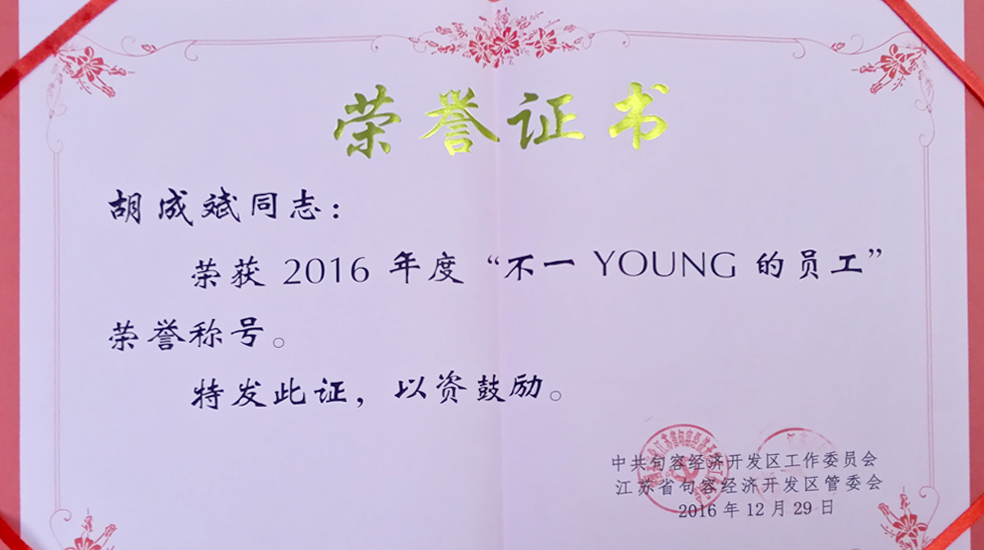 荣誉证书
胡成斌同志：
荣获 2016 年度“不一 YOUNG 的员工”
荣誉称号。
特发此证，以资鼓励。
中共句容经济开发区工作委员会
江苏省句容经济开发区管委会
2016 年 12 月 29 日